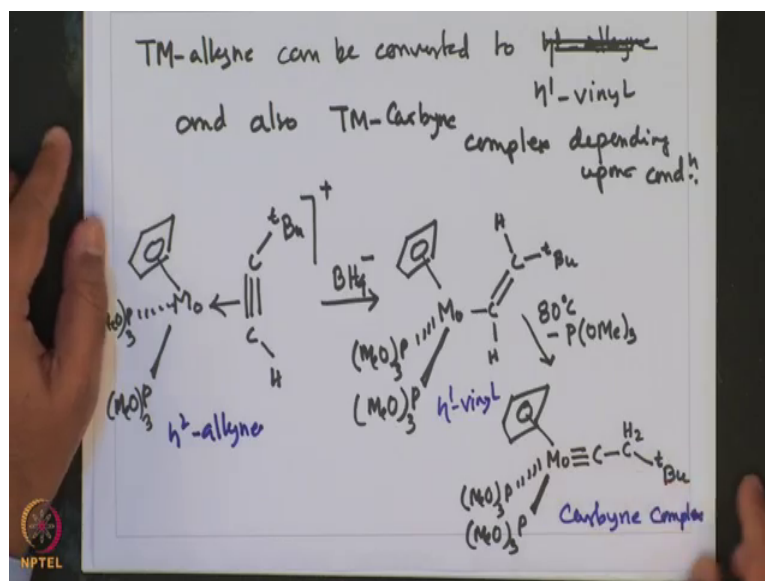 TM-alkyne can be converted to
η¹-vinyl
and also TM-Carbyne
complex depending
upon condⁿ.
ᵗBu ]⁺
C
Mo ← ||| C
H
(MeO)₃P
(MeO)₃P
η²-alkyne
BH₄⁻
H
C-ᵗBu
Mo-C
H
(MeO)₃P
(MeO)₃P
η¹-vinyl
80°C
- P(OMe)₃
Mo≡C-C-ᵗBu
H₂
(MeO)₃P
(MeO)₃P
Carbyne Complex
NPTEL